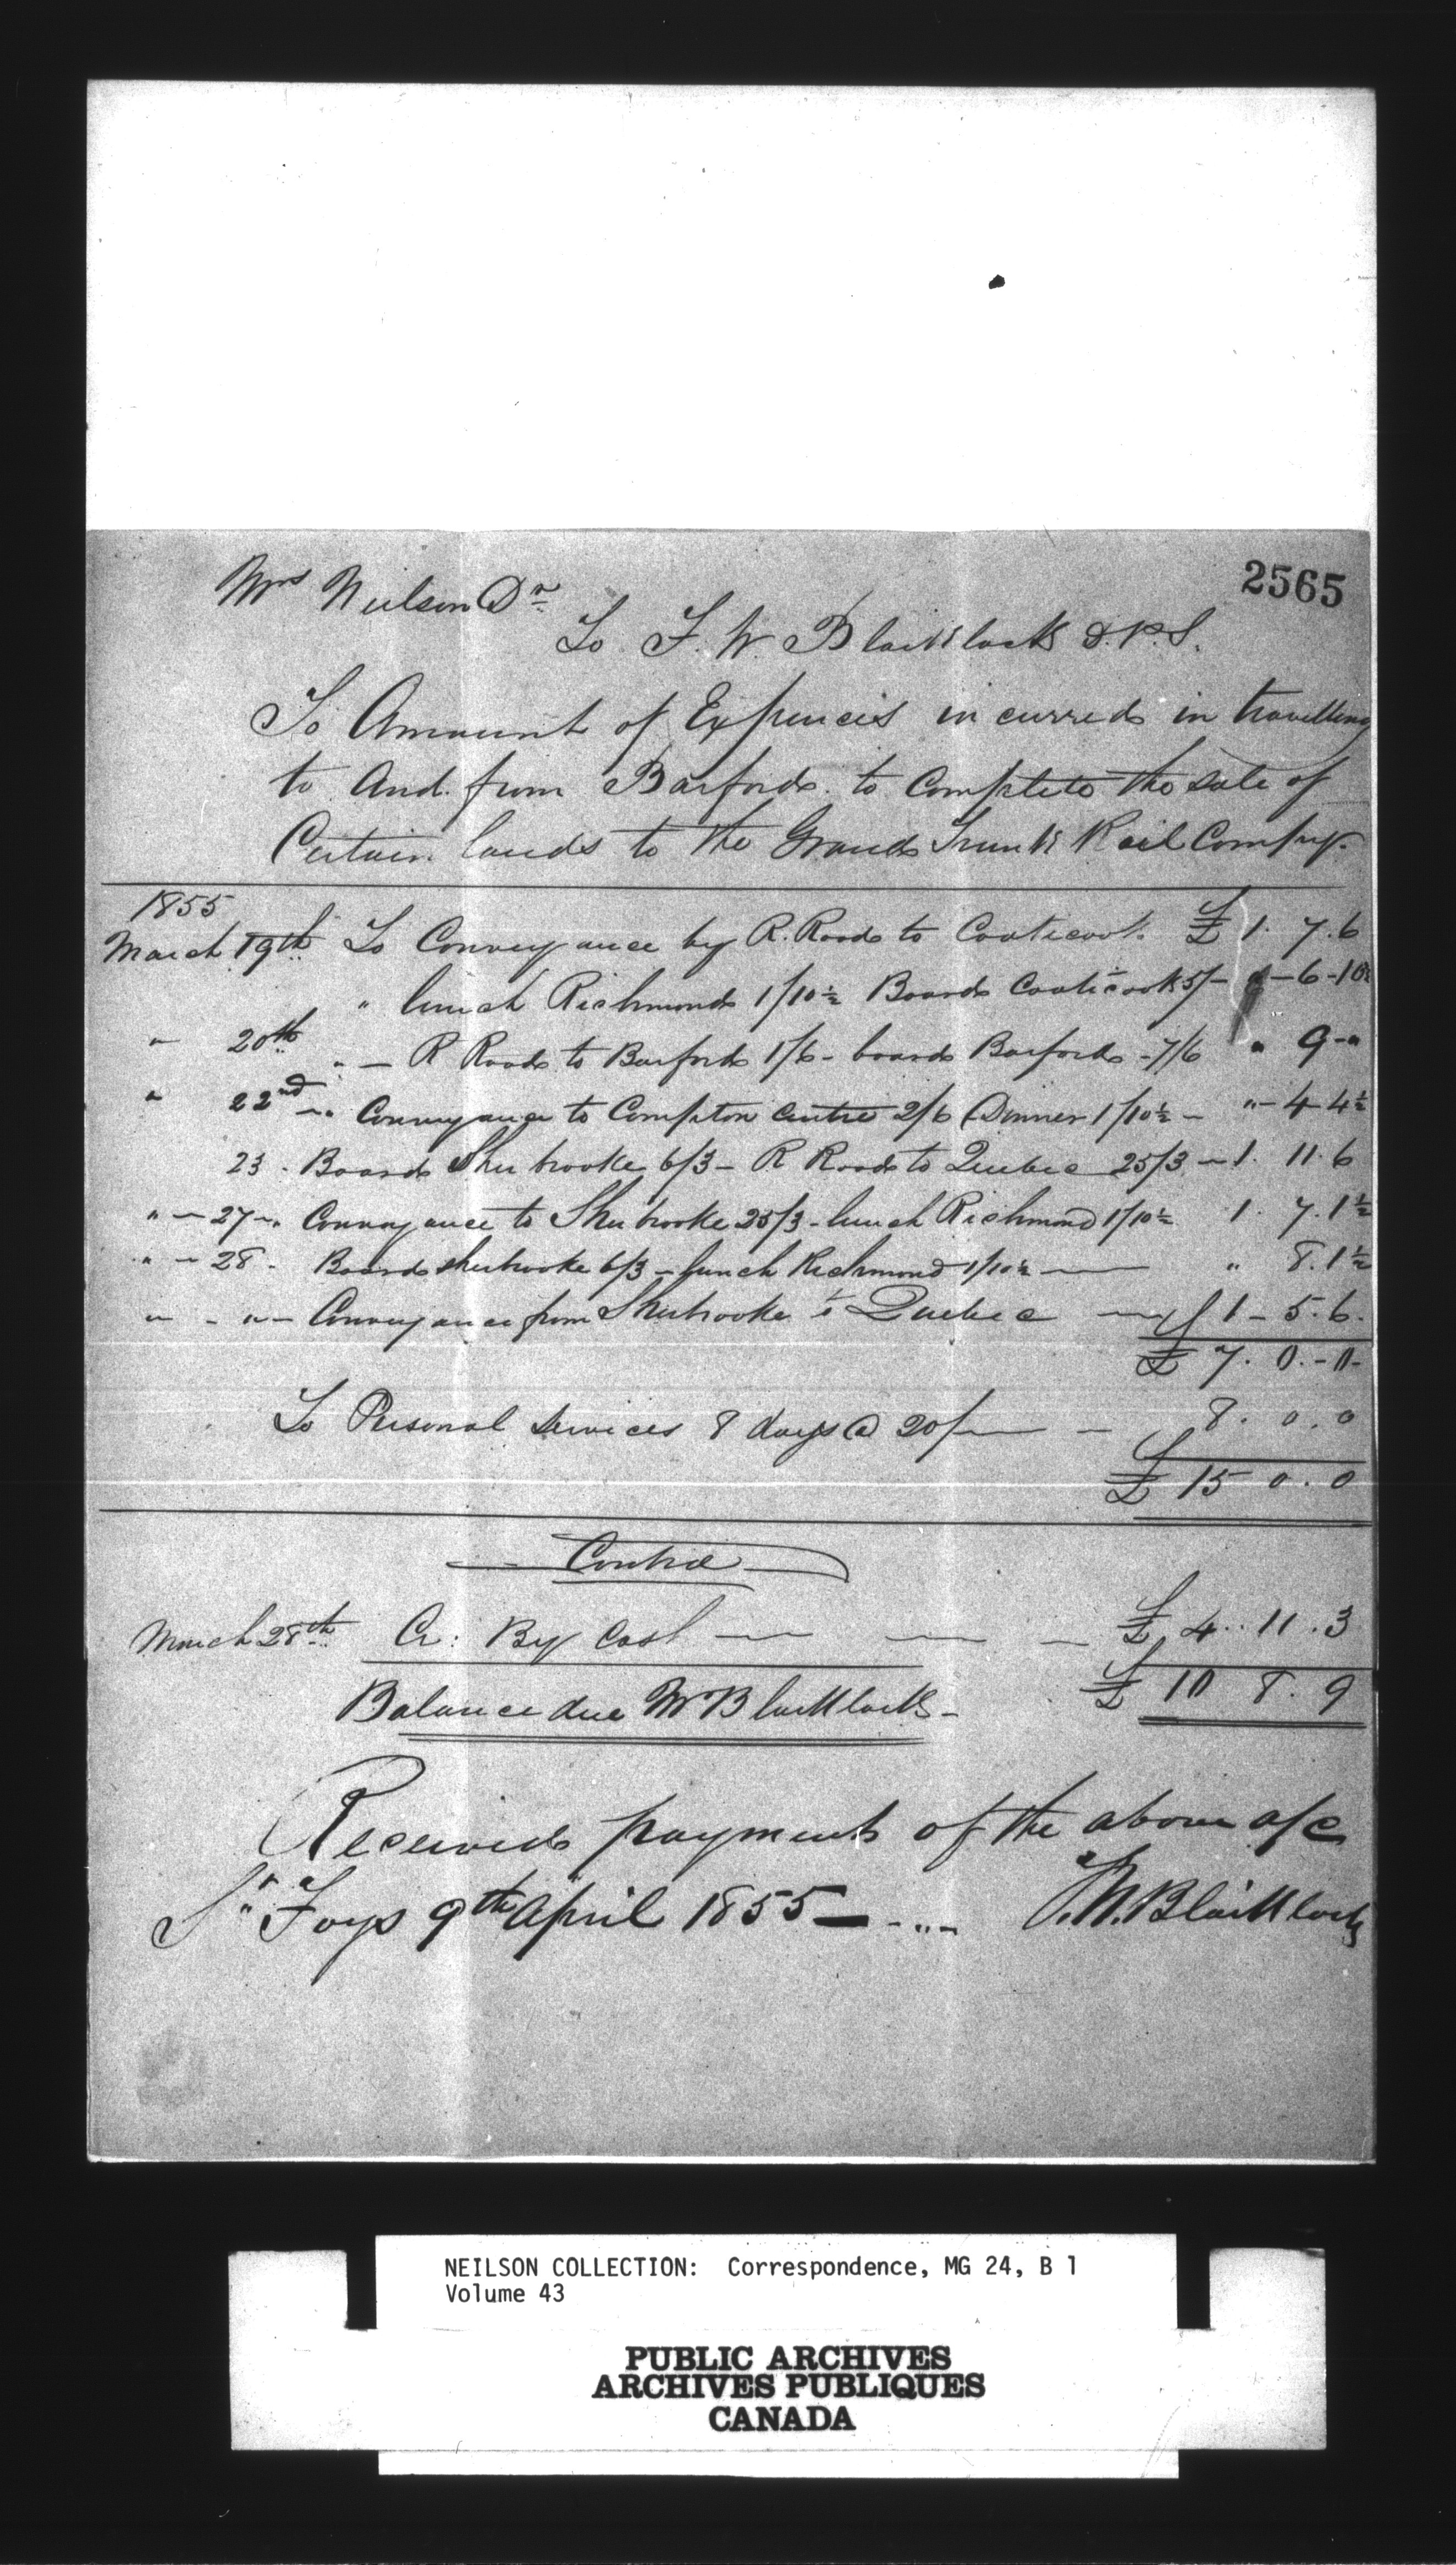 2565
Mrs Neilson Dr
To F. W. Blaiklock D.P.S.
To Amount of Expences incurred in travelling
to And from Barford to Complete the sale of
Certain lands to the Grand Trunk Rail Compy.
1855
March 19th To Conveyance by R. Road to Coaticook £ 1. 7. 6
" lunch Richmond 1/10½ Board Coaticook 5/- " - 6 - 10½
" 20th " - R Road to Barford 1/6 - board Barford - 7/6 " 9 - "
" 22nd " Conveyance to Compton Centre 2/6 Dinner 1/10½ - " - 4 4½
23 - Board Sherbrooke 6/3 - R Road to Quebec 25/3 - 1. 11. 6
" - 27 - " Conveyance to Sherbrooke 25/3 - lunch Richmond 1/10½ 1. 7. 1½
" - 28 - Board Sherbrooke 6/3 - lunch Richmond 1/10½ — " 8. 1½
" - " - Conveyance from Sherbrooke to Quebec — 1 - 5. 6.
£ 7. 0. - 0 -
To Personal Services 8 days @ 20/ — - 8. 0. 0
£ 15 0. 0
Contra
March 28th Cr: By Cash — — - £ 4.. 11. 3
Balance due Mr Blaiklock - £ 10 8. 9
Received payment of the above a/c
St Foys 9th April 1855 — F.W. Blaiklock
NEILSON COLLECTION: Correspondence, MG 24, B 1
Volume 43
PUBLIC ARCHIVES
ARCHIVES PUBLIQUES
CANADA